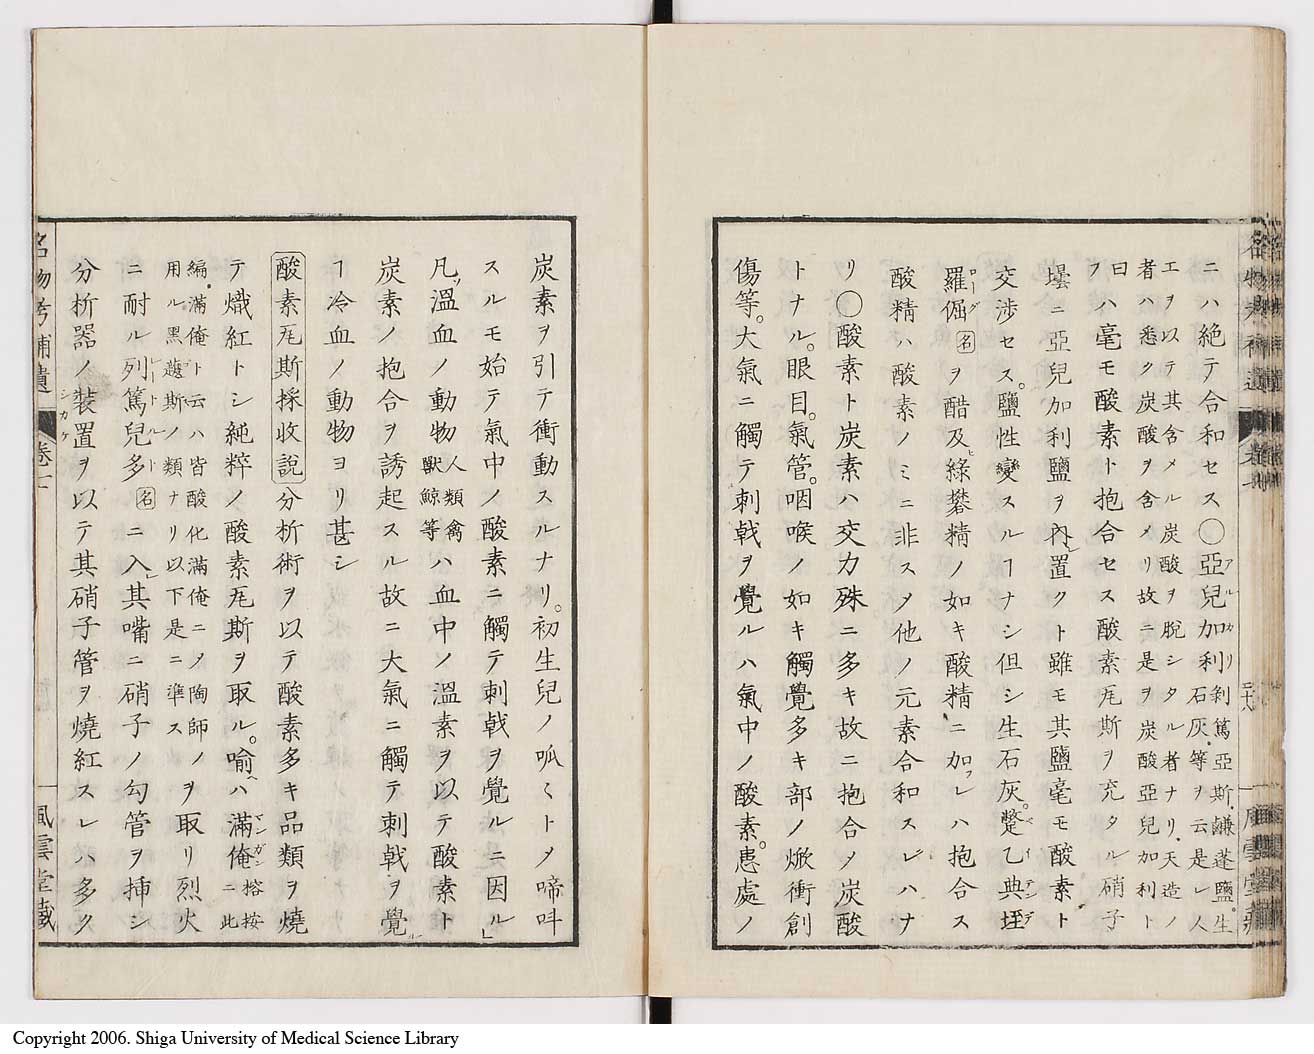 ニハ絶テ合和セス〇亞兒加利剝篤亞斯鹻蓬鹽生石灰等ヲ云是レ人
エヲ以テ其含メル炭酸ヲ脫シタル者ナリ天造ノ
者ハ悉ク炭酸ヲ含メリ故ニ是ヲ炭酸亞兒加利ト
曰フハ毫モ酸素ト抱合セス酸素瓦斯ヲ充タル硝子
壜ニ亞兒加利鹽ヲ內置クト雖モ其鹽毫モ酸素ト
交渉セス鹽性變スルヿナシ但シ生石灰蹩乙典垤
羅倔名ヲ醋及ヒ綠礬精ノ如キ酸精ニ加フレハ抱合ス
酸精ハ酸素ノミニ非スメ他ノ元素合和スレハナ
リ〇酸素ト炭素ハ交力殊ニ多キ故ニ抱合メ炭酸
トナル。眼目。氣管。咽喉ノ如キ觸覺多キ部ノ焮衝創
傷等。大氣ニ觸テ刺戟ヲ覺ルハ氣中ノ酸素。患處ノ
名物考補遺 卷一 風雲堂藏
炭素ヲ引テ衝動スルナリ。初生兒ノ呱〻トメ啼呌
スルモ始テ氣中ノ酸素ニ觸テ刺戟ヲ覺ルニ因ル」
凡ソ溫血ノ動物人類禽獸鯨等ハ血中ノ溫素ヲ以テ酸素ト
炭素ノ抱合ヲ誘起スル故ニ大氣ニ觸テ刺戟ヲ覺ル
ヿ冷血ノ動物ヨリ甚シ
酸素瓦斯採收說 分析術ヲ以テ酸素多キ品類ヲ燒
テ熾紅トシ純粹ノ酸素瓦斯ヲ取ル。喻ヘハ滿俺榕按ニ此
編滿俺ト云ハ皆酸化滿俺ニメ陶師ノ
用ル黑趪斯ノ類ナリ以下是ニ準スヲ取リ烈火
ニ耐ル列篤兒多名ニ入其嘴ニ硝子ノ勾管ヲ挿シ
分析器ノ裝置ヲ以テ其硝子管ヲ燒紅スレハ多ク
名物考補遺 卷一 風雲堂藏
Copyright 2006. Shiga University of Medical Science Library